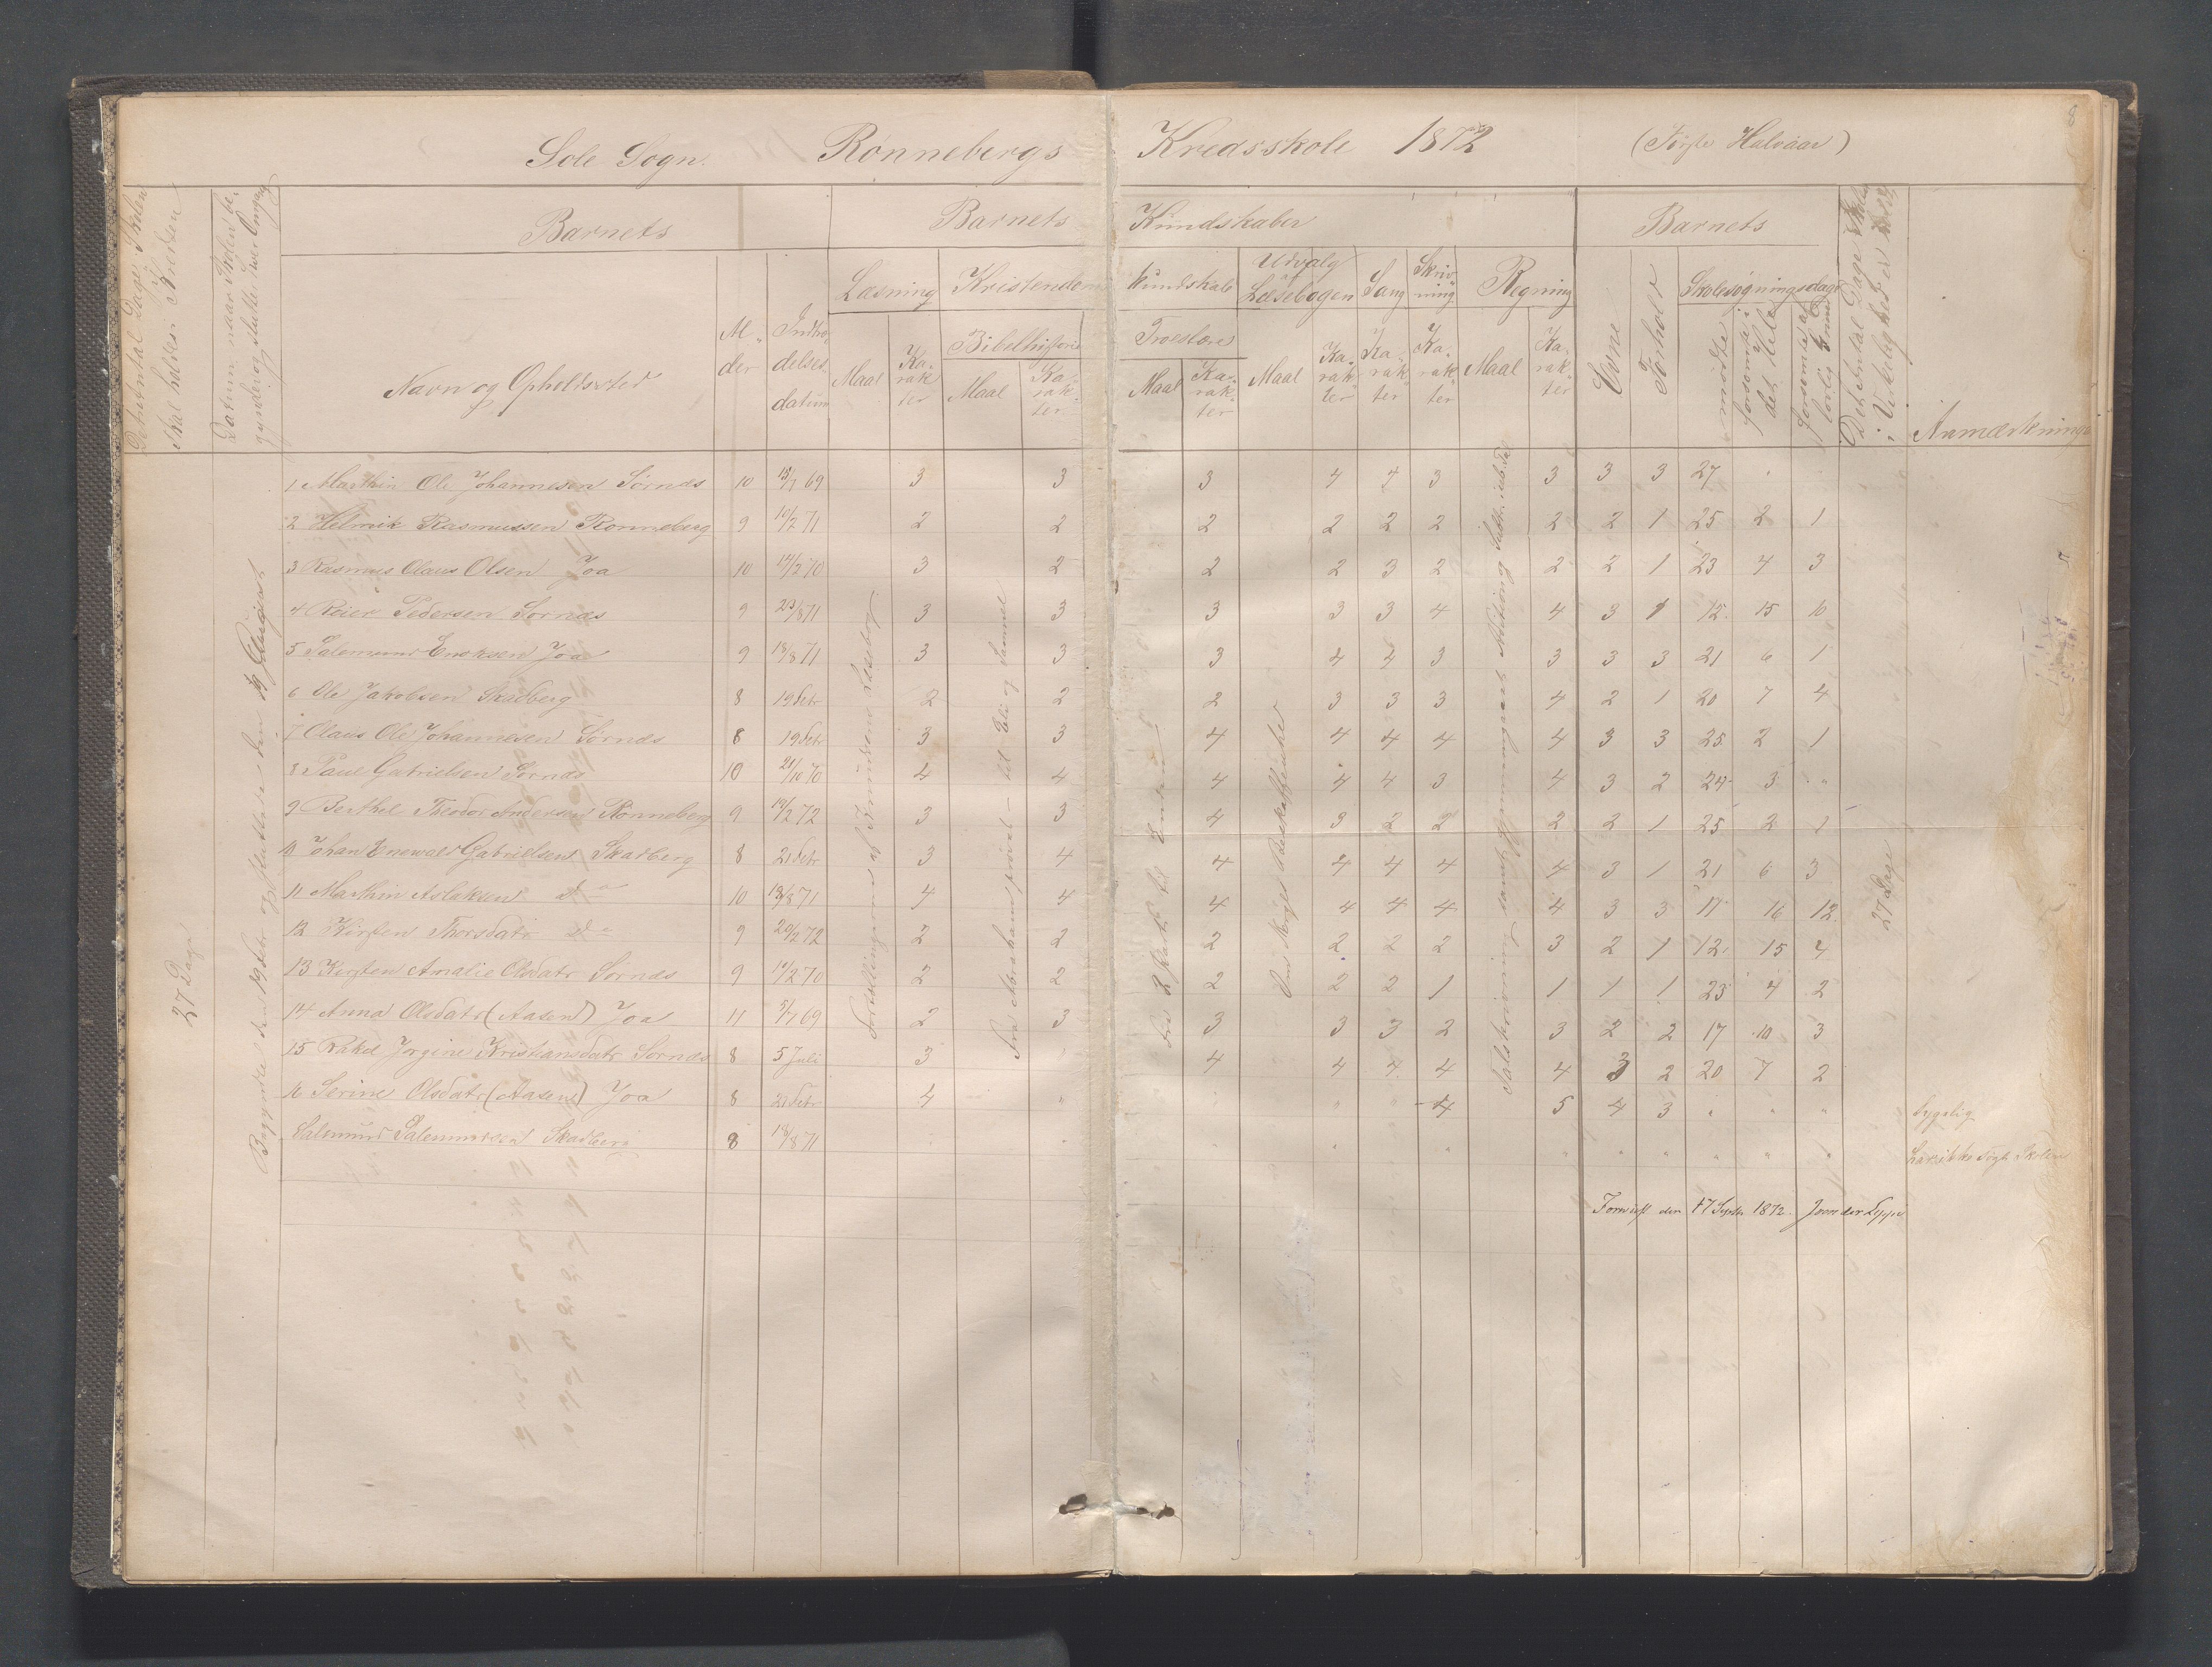 Sole Sogn. Rønnebergs Kredsskole 1872 (Første Halvaar)
8
Det Antal Dage Skolen skal holdes i Kredsen
Datum naar Skolen begynder og slutter hver Omgang
Barnets
Barnets Kundskaber
Barnets
Det Antal Dage Skolen i Virkelighed er
Navn og Opholdssted
Alder
Indtrædelsesdatum
Læsning
Kristendomskundskab
Udvalg af Læsebogen
Sang
Skrivning
Regning
Evne
Forhold
Skolesøgningsdage
Bibelhistorie
Troeslære
Maal
Karakter
Maal
Karakter
Maal
Karakter
Maal
Karakter
Karakter
Karakter
Maal
Karakter
mødte
forsømte i det Hele
forsømte af lovlig Grund
Anmærkninger
1 Marthin Ole Johannesen Sørnæs 10 15/7 69 3 3 3 4 4 3 3 3 3 27 " "
2 Helmik Rasmussen Rønneberg 9 10/2 71 2 2 2 2 2 2 2 2 1 25 2 1
3 Rasmus Olaus Olsen Joa 10 14/2 70 3 2 2 2 3 2 2 2 1 23 4 3
4 Reier Pedersen Sørnæs 9 23/8 71 3 3 3 3 3 4 4 3 1 12 15 10
5 Salemund Enoksen Joa 9 18/8 71 3 3 3 4 4 3 3 3 3 21 6 1
6 Ole Jakobsen Skadberg 8 19 Febr 2 2 2 3 3 3 4 2 1 20 7 4
7 Claus Ole Johannesen Sørnæs 8 19 Febr 3 3 4 4 4 4 4 3 3 25 2 1
8 Paul Gabrielsen Sørnæs 10 21/10 70 4 4 4 4 4 3 4 3 2 24 3 "
9 Berthel Theodor Andersen Rønneberg 9 19/2 72 3 3 4 3 2 2 2 2 1 25 2 1
10 Johan Enewald Gabrielsen Skadberg 8 21 Febr 3 4 4 4 4 4 4 3 1 21 6 3
11 Marthin Aslaksen do 10 18/8 71 4 4 4 4 4 4 4 3 3 11 16 12
12 Kirsten Thorsdatr do 9 20/2 72 2 2 2 2 2 2 3 2 1 12 15 4
13 Kirsten Amalie Olsdatr Sørnæs 9 14/2 70 2 2 2 2 2 1 1 1 1 23 4 2
14 Anna Olsdatr (Aasen) Joa 11 5/7 69 2 3 3 3 3 2 3 2 2 17 10 3
15 Rakel Jorgine Kristiansdatr Sørnæs 8 5 Juli 3 " 4 4 4 4 4 3 2 20 7 2
16 Serine Olsdatr (Aasen) Joa 8 21 Febr 4 " " " " 4 5 4 3 " " " Sygelig
Salemund Salemundsen Skadberg 8 18/8 71 " " " " " " " " " " Søgte Skolen
27 Dage
Begyndte den 19 Febr og sluttede den 19 August
Fortællingerne af Jensens Læsebog
Fra til Eli og Samuel
Fra 2 Part til Enden
Om Norges Beskaffenhed
27 Dage
Forevist den 17 Septbr 1872